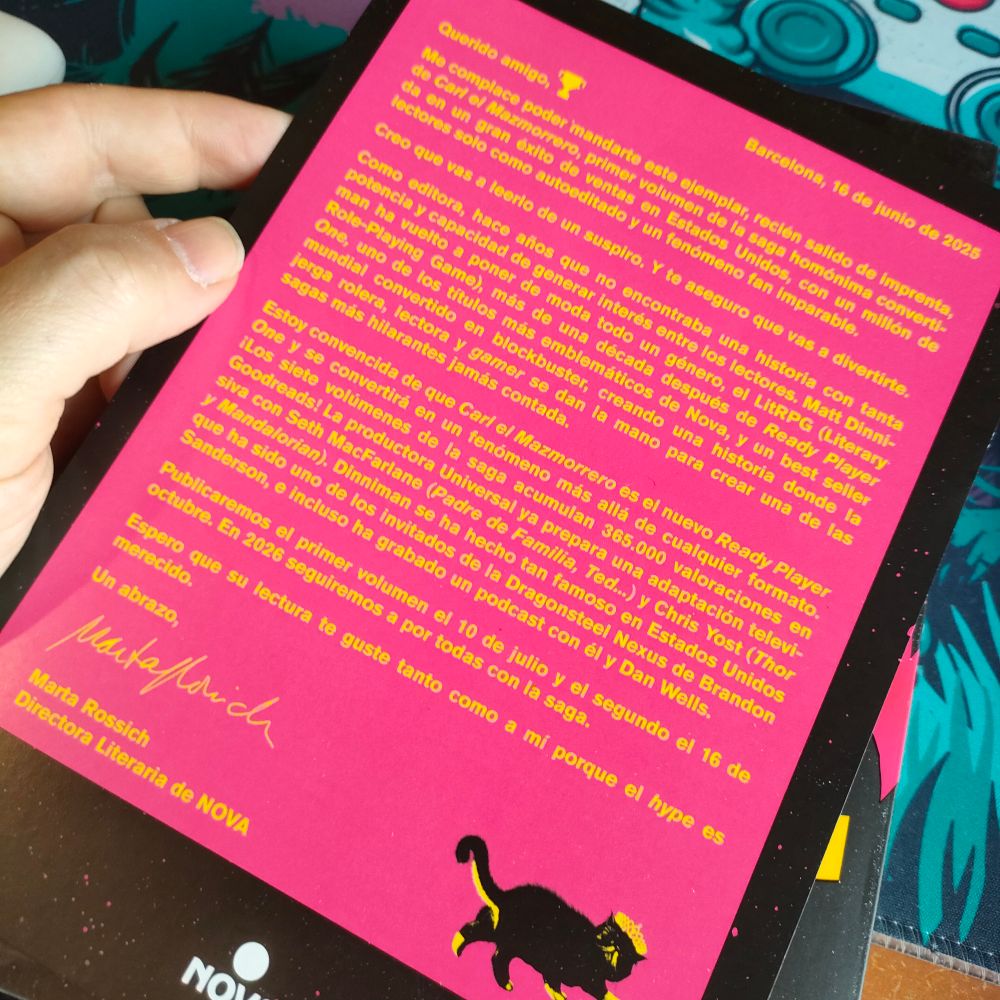 Barcelona, 16 de junio de 2025
Querido amigo,
Me complace poder mandarte este ejemplar, recién salido de imprenta,
de Carl el Mazmorrero, primer volumen de la saga homónima converti-
da en un gran éxito de ventas en Estados Unidos, con un millón de
lectores solo como autoeditado y un fenómeno fan imparable.
Creo que vas a leerlo de un suspiro. Y te aseguro que vas a divertirte.
Como editora, hace años que no encontraba una historia con tanta
potencia y capacidad de generar interés entre los lectores. Matt Dinni-
man ha vuelto a poner de moda todo un género, el LitRPG (Literary
Role-Playing Game), más de una década después de Ready Player
One, uno de los títulos más emblemáticos de Nova, y un best seller
mundial convertido en blockbuster, creando una historia donde la
jerga rolera, lectora y gamer se dan la mano para crear una de las
sagas más hilarantes jamás contada.
Estoy convencida de que Carl el Mazmorrero es el nuevo Ready Player
One y se convertirá en un fenómeno más allá de cualquier formato.
¡Los siete volúmenes de la saga acumulan 365.000 valoraciones en
Goodreads! La productora Universal ya prepara una adaptación televi-
siva con Seth MacFarlane (Padre de Familia, Ted...) y Chris Yost (Thor
y Mandalorian). Dinniman se ha hecho tan famoso en Estados Unidos
que ha sido uno de los invitados de la Dragonsteel Nexus de Brandon
Sanderson, e incluso ha grabado un podcast con él y Dan Wells.
Publicaremos el primer volumen el 10 de julio y el segundo el 16 de
octubre. En 2026 seguiremos a por todas con la saga.
Espero que su lectura te guste tanto como a mí porque el hype es
merecido.
Un abrazo,
Marta Rossich
Marta Rossich
Directora Literaria de NOVA
NOVA